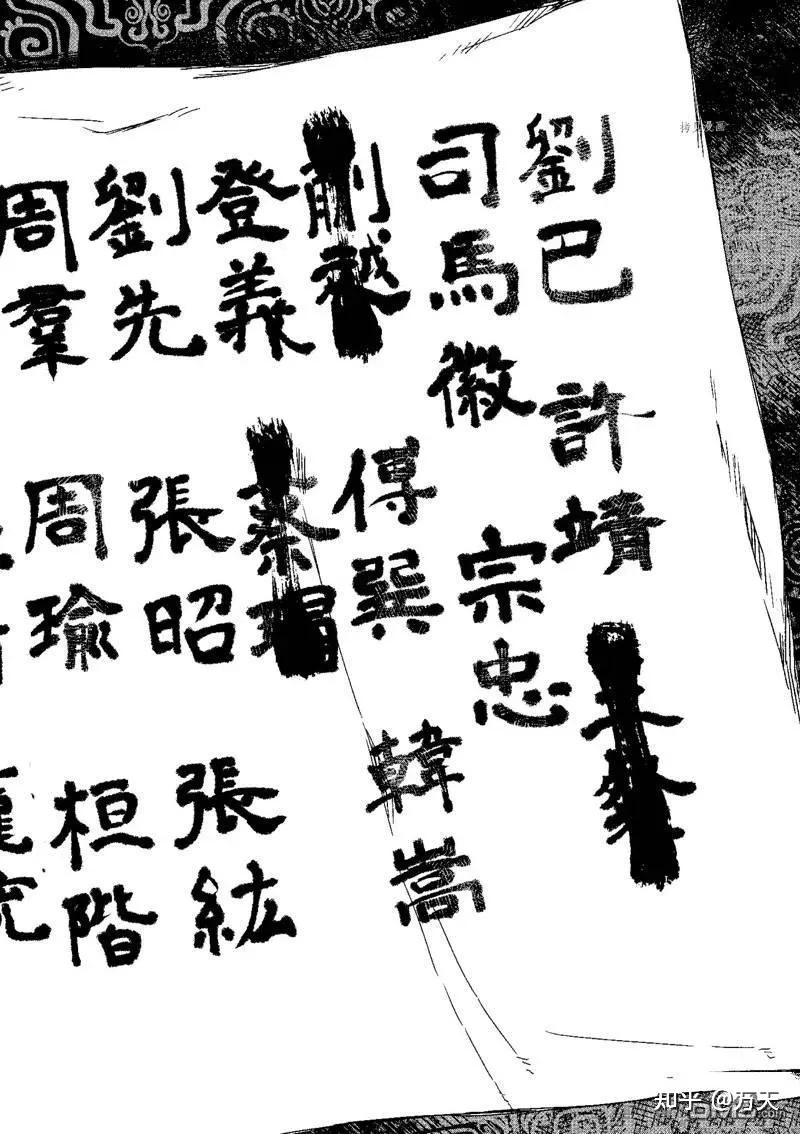 劉巴 許靖 王粲
司馬徽 宗忠
蒯越 傅巽 韓嵩
登義 蔡瑁
劉先 張昭 張紘
周羣 周瑜 桓階
拷贝漫画
知乎